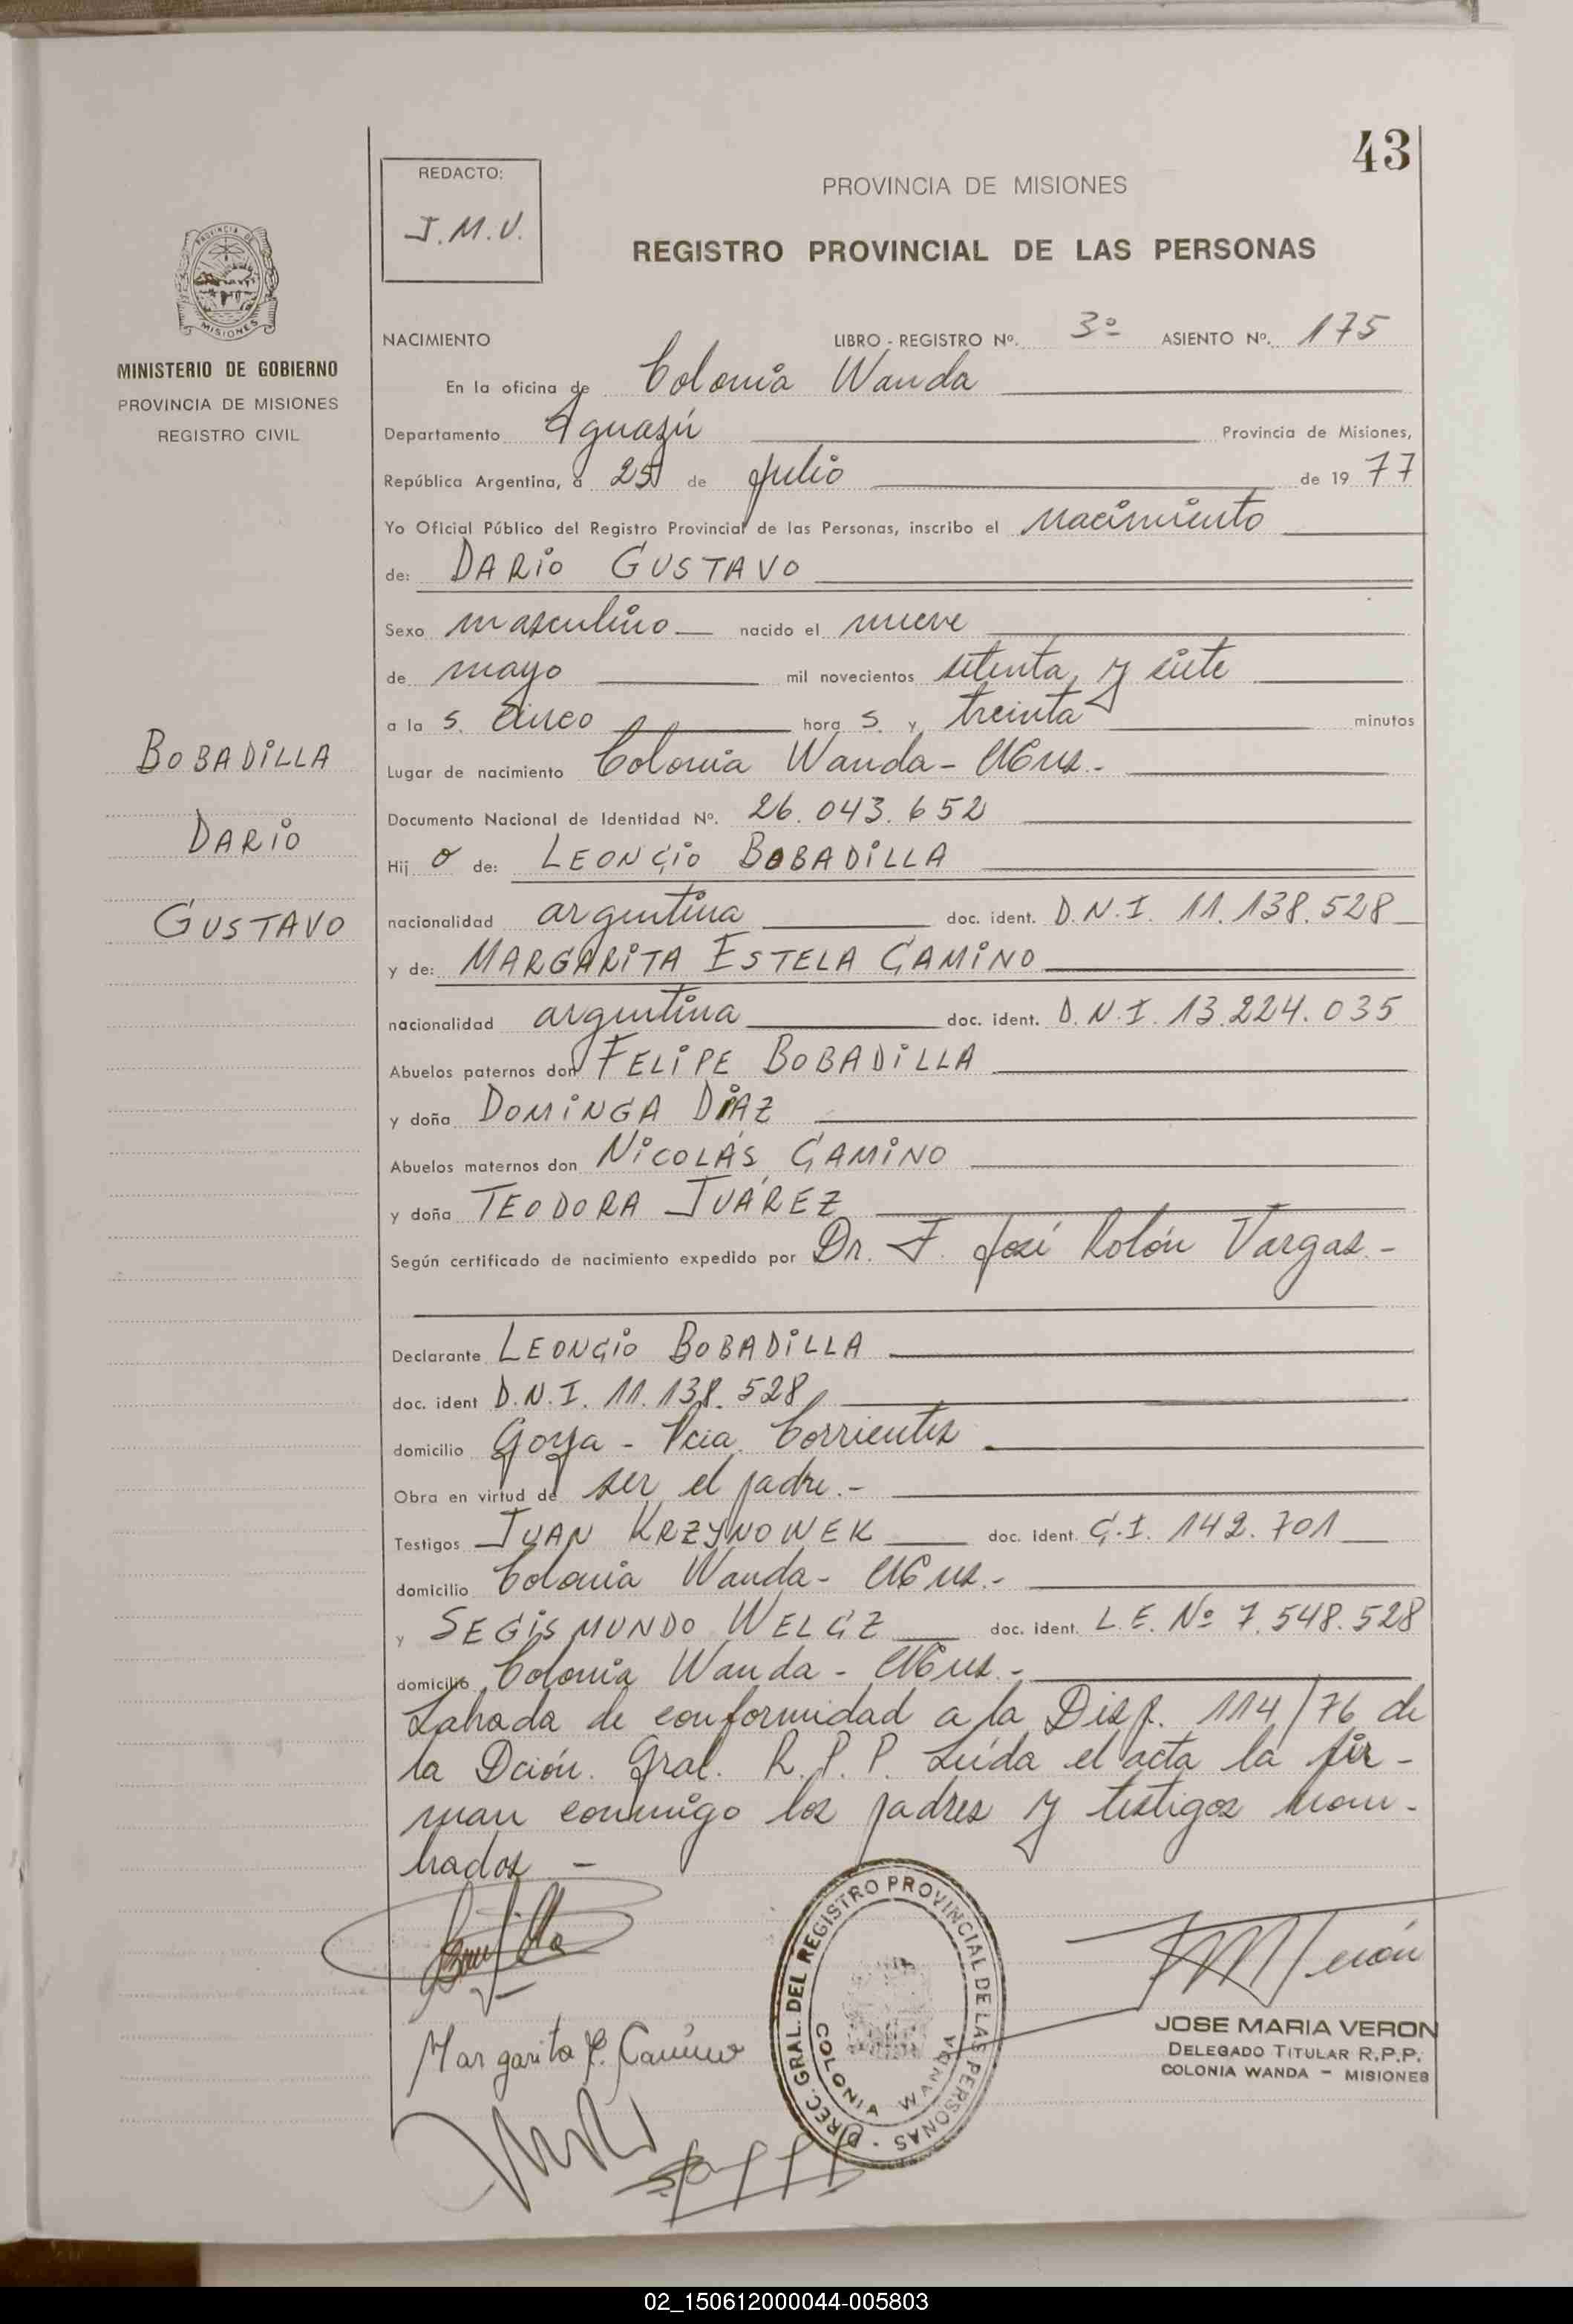 43
REDACTO:
J.M.V.
PROVINCIA DE MISIONES
REGISTRO PROVINCIAL DE LAS PERSONAS
PROVINCIA DE
MISIONES
MINISTERIO DE GOBIERNO
PROVINCIA DE MISIONES
REGISTRO CIVIL
NACIMIENTO LIBRO - REGISTRO Nº. 3º ASIENTO Nº. 175
En la oficina de Colonia Wanda
Departamento Iguazú Provincia de Misiones,
República Argentina, a 25 de julio de 19 77
Yo Oficial Público del Registro Provincial de las Personas, inscribo el nacimiento
de: DARIO GUSTAVO
Sexo masculino nacido el nueve
de mayo mil novecientos setenta y siete
a la s. cinco hora s. y treinta minutos
Lugar de nacimiento Colonia Wanda - Mnes.-
Documento Nacional de Identidad Nº. 26.043.652
Hij o de: LEONCIO BOBADILLA
nacionalidad argentina doc. ident. D.N.I. 11.138.528
y de: MARGARITA ESTELA CAMINO
nacionalidad argentina doc. ident. D.N.I. 13.224.035
Abuelos paternos don FELIPE BOBADILLA
y doña DOMINGA DIAZ
Abuelos maternos don NICOLÁS CAMINO
y doña TEODORA JUÁREZ
Según certificado de nacimiento expedido por Dr. F. José Rolón Vargas.-
Declarante LEONCIO BOBADILLA
doc. ident D.N.I. 11.138.528
domicilio Goya - Pcia. Corrientes
Obra en virtud de ser el padre.-
Testigos JUAN KRZYNOWEK doc. ident. C.I. 142.701
domicilio Colonia Wanda - Mnes.-
y SEGISMUNDO WELCZ doc. ident. L.E. Nº 7.548.528
domicilio Colonia Wanda - Mnes.-
Labrada de conformidad a la Disp. 114/76 de
la Dción. Gral. R.P.P. Leída el acta la fir-
man conmigo los padres y testigos nom-
brados -
BOBADILLA
DARIO
GUSTAVO
Margarita E. Camino
DIREC. GRAL. DEL REGISTRO PROVINCIAL DE LAS PERSONAS
COLONIA WANDA
JMVerón
JOSE MARIA VERON
DELEGADO TITULAR R.P.P.
COLONIA WANDA - MISIONES
02_150612000044-005803